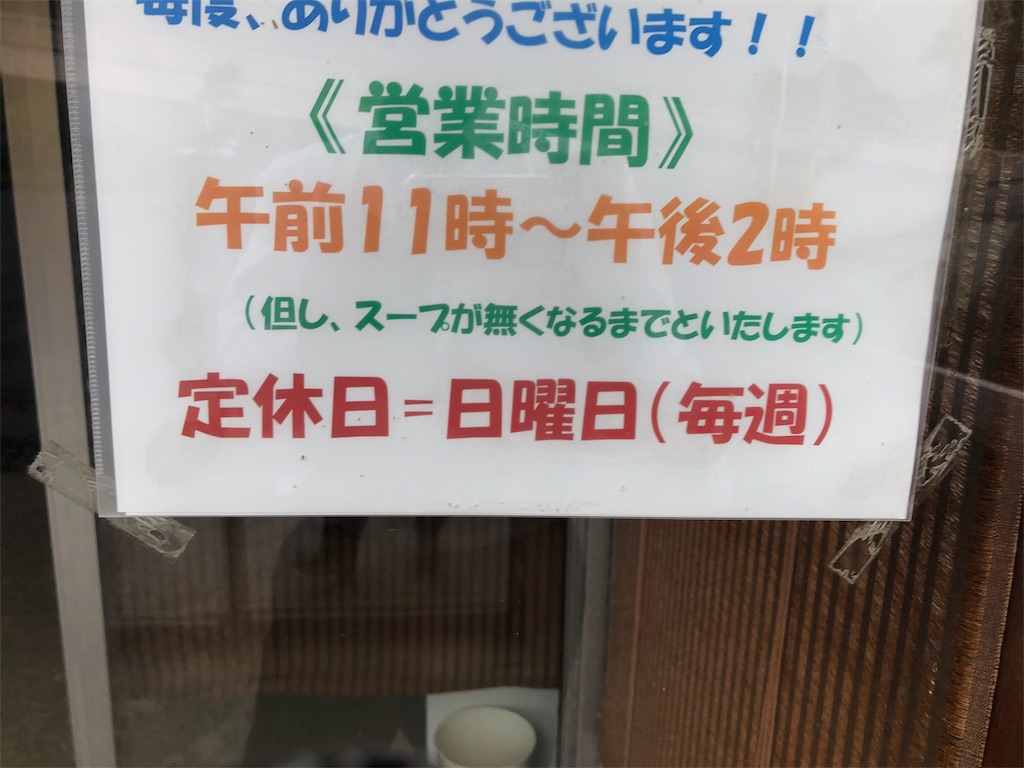 毎度、ありがとうございます！！
《営業時間》
午前11時～午後2時
（但し、スープが無くなるまでといたします）
定休日=日曜日(毎週)